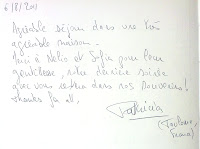 6/8/2011
Agréable séjour dans une très
agréable maison.
Merci à Nelio et Sofia pour leur
gentillesse,
que vous restera dans nos souvenirs!
thanks for all,
Patricia
(Toulouse,
France)